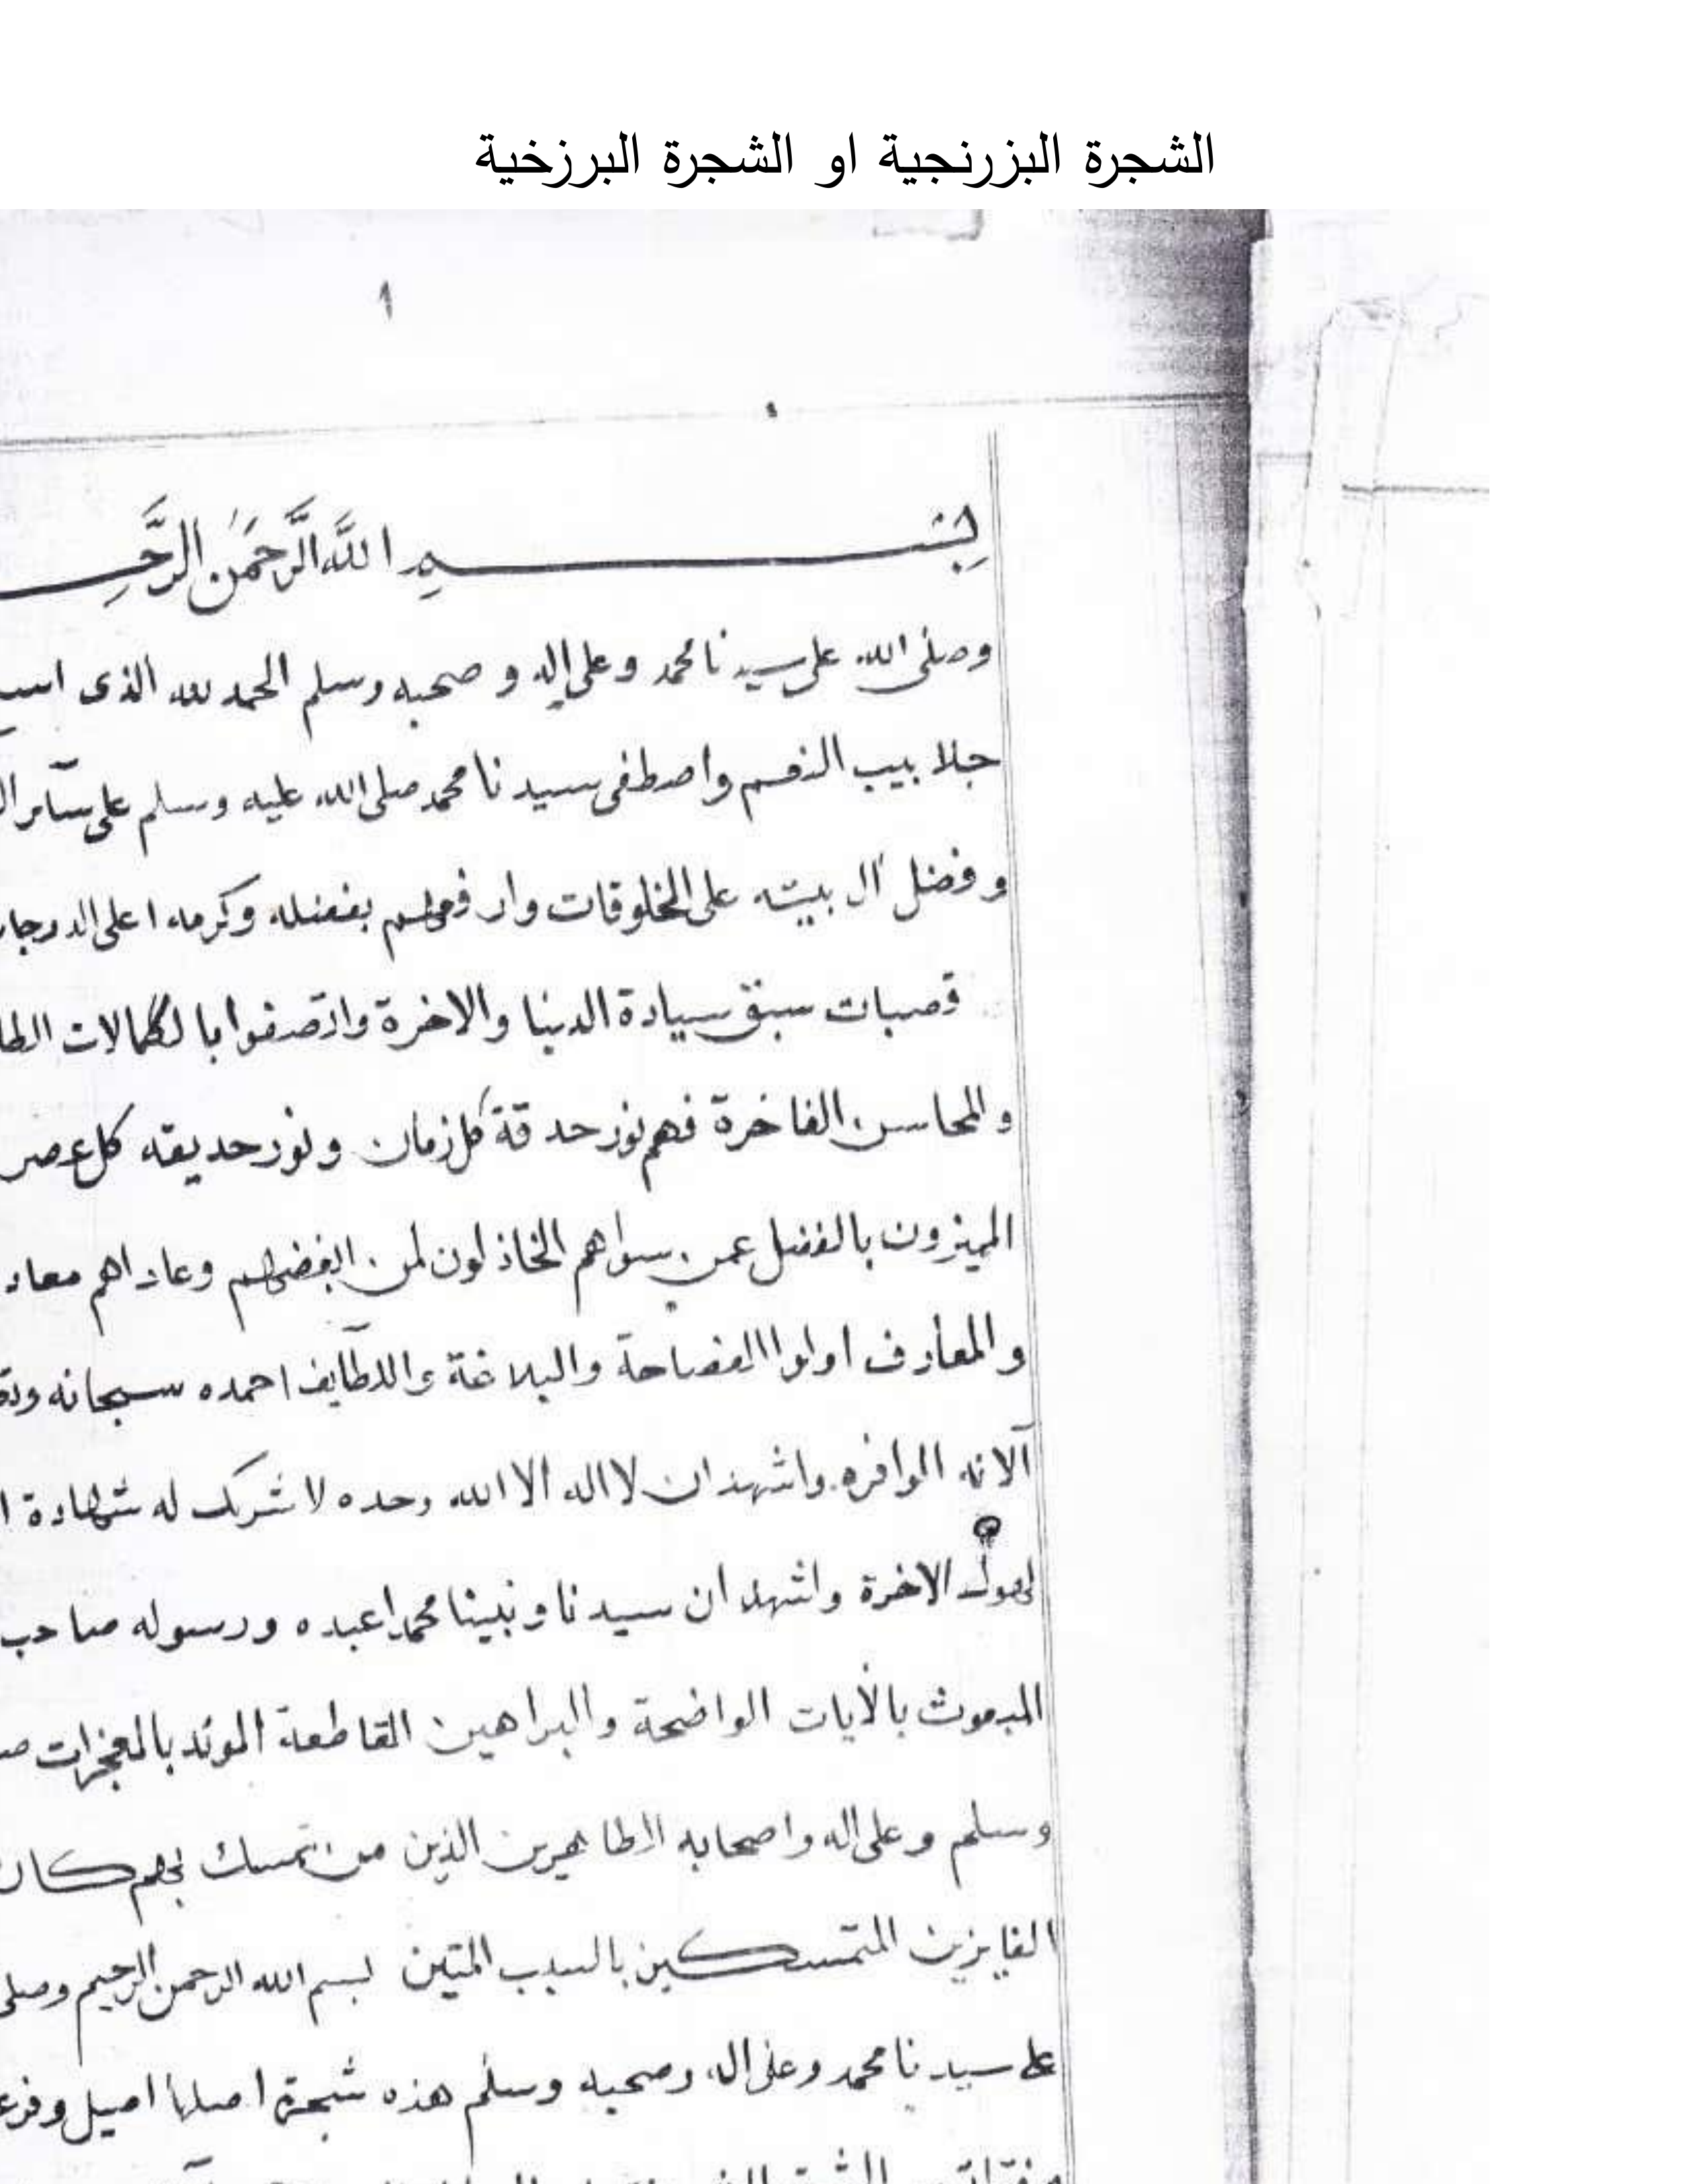 الشجرة البزرنجية او الشجرة البرزخية
١
بسم الله الرحمن الرحـ
وصلى الله على سيدنا محمد وعلى اله و صحبه وسلم الحمد لله الذى
جلابيب النعم واصطفى سيدنا محمد صلى الله عليه وسلم على سآئر
وفضل آل بيته على المخلوقات وار بفضله وكرمه اعلى الدرجات
قصبات سبق سيادة الدنيا والاخرة واتصفوا با لكمالات
والمحاسن الفاخرة فهم نور حدقة كل زمان ونور حديقه كل عصر
المميزون بالفضل عمن سواهم الخاذلون لمن ابغضهم وعاداهم معاد
والمعارف اولوا الفصاحة والبلاغة واللطآيف احمده سبحانه
آلائه الوافره واشهد ان لا اله الا الله وحده لا شريك له شهادة
لهول الاخرة واشهد ان سيدنا ونبينا محمدا عبده ورسوله صاحب
المبعوث بالأيات الواضحة والبراهين القاطعة الموئد بالمعجزات
وسلم وعلى اله واصحابه الطاهرين الذين من تمسك بهم كان
الفايزين المتمسكين بالسبب المتين بسم الله الرحمن الرحيم وصلى
على سيدنا محمد وعلى اله وصحبه وسلم هذه شجرة اصلها اصيل